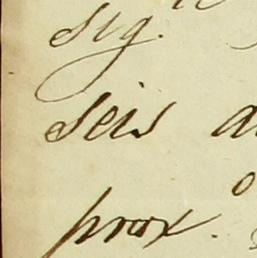 sig.
seis
prox.